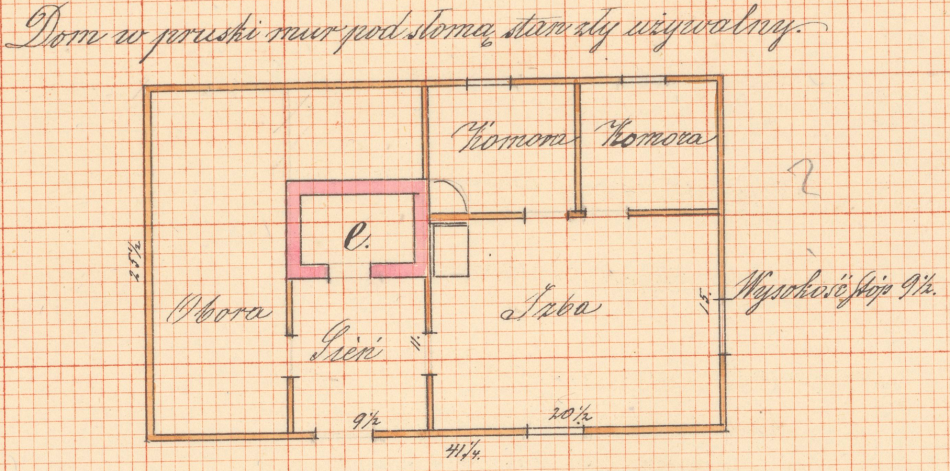 Dom w pruski mur pod słomą, stan zły używalny.
Komora Komora
2
C.
25½
Wysokość stóp 9½.
15.
Obora
Izba
Sień
11.
9½
20½
41¼.